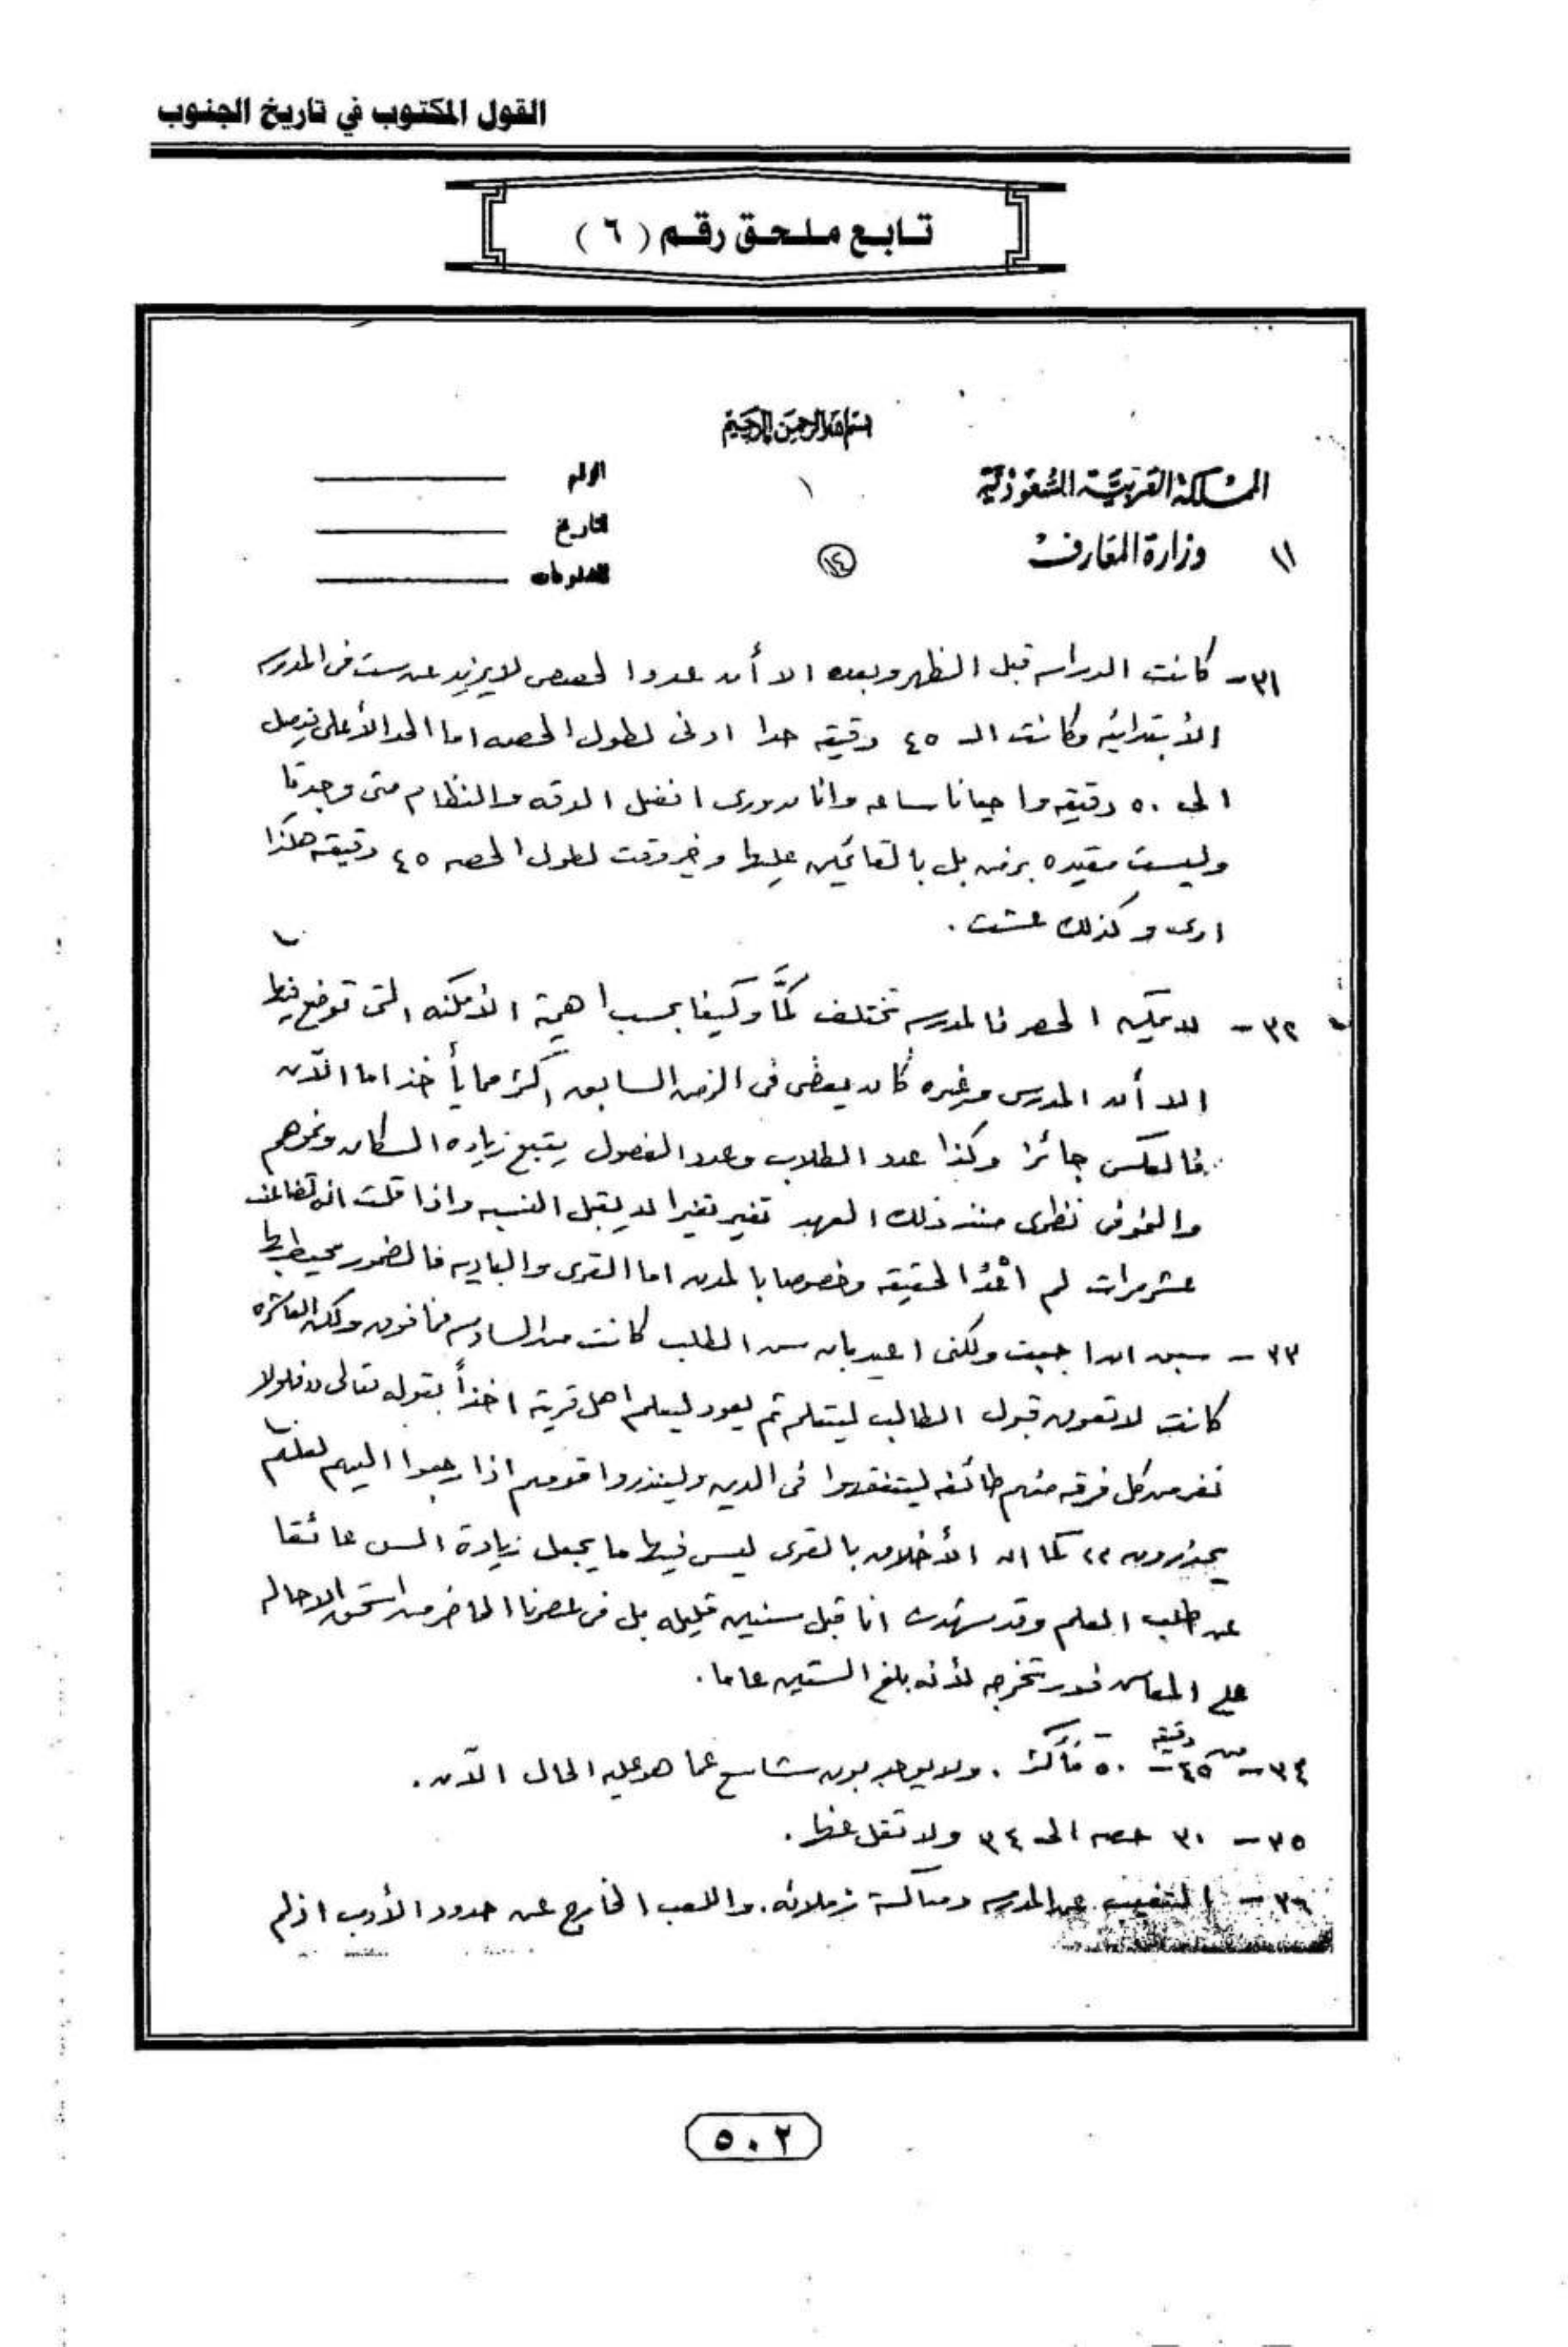 القول المكتوب في تاريخ الجنوب
تابع ملحق رقم ( ٦ )
بسم الله الرحمن الرحيم
المملكة العربية السعودية
وزارة المعارف
١١
١
١٤
الرقم
التاريخ
٣١- كانت الدراسه قبل الظهر وبعده الا أن عدد الحصص لايزيد عن ست فى المدرسه
الأبتدائيه وكانت الـ ٤٥ دقيقه حدا ادنى لطول الحصه اما الحد الأعلى فيصل
الى ٥٠ دقيقه واحيانا ساعه وانا بدورى افضل الدقه والنظام متى وجدتا
وليست مقيده بزمن بل بالقائمين عليها وخير وقت لطول الحصه ٤٥ دقيقه هكذا
ارى وكذلك عشت .
٣٢- لايمكن الحصر فالمدرسه تختلف كمًّا وكيفا بحسب اهمية الأمكنه التى توضع فيها
الا أن المدرس وغيره كان يعطى فى الزمن السابق اكثر مما يأخذ اما الآن
فالعكس جائز وكذا عدد الطلاب وعدد الفصول يتبع زيادة السكان ونموهم
والنمو فى نظرى منذ ذلك العهد تغير تغيرا لايقبل النسبه واذا قلت انه تضاعف
عشر مرات لم أعْدُ الحقيقه وخصوصا بالمدن اما القرى والباديه فالضمور محيط بها
٣٣- سبق ان اجبت ولكنى اعيد بان سن الطلب كانت من السادسه فما فوق ولكن العاشره
كانت لاتعوق قبول الطالب ليتعلم ثم يعود ليعلم اهل قريته اخذاً بقوله تعالى "فلولا
نفر من كل فرقه منهم طائفه ليتفقهوا فى الدين ولينذروا قومهم اذا رجعوا اليهم لعلهم
يحذرون" كما ان الأخلاق بالقرى ليس فيها ما يجعل زيادة السن عائقا
عن طلب العلم وقد شهدت انا قبل سنين قليله بل فى عصرنا الحاضر من استحق الاحاله
على المعاش فور تخرجه لأنه بلغ الستين عاما .
٣٤- من ٤٥ دقيقه - ٥٠ فأكثر . ولايوجد بون شاسع عما هو عليه الحال الآن .
٣٥- ٣٠ حصه الى ٣٤ ولا تقل عنها .
٣٦- التغيب عن المدرسه ومعاكسة زملائه . واللعب الخارج عن حدود الأدب اذ لم
٥٠٢